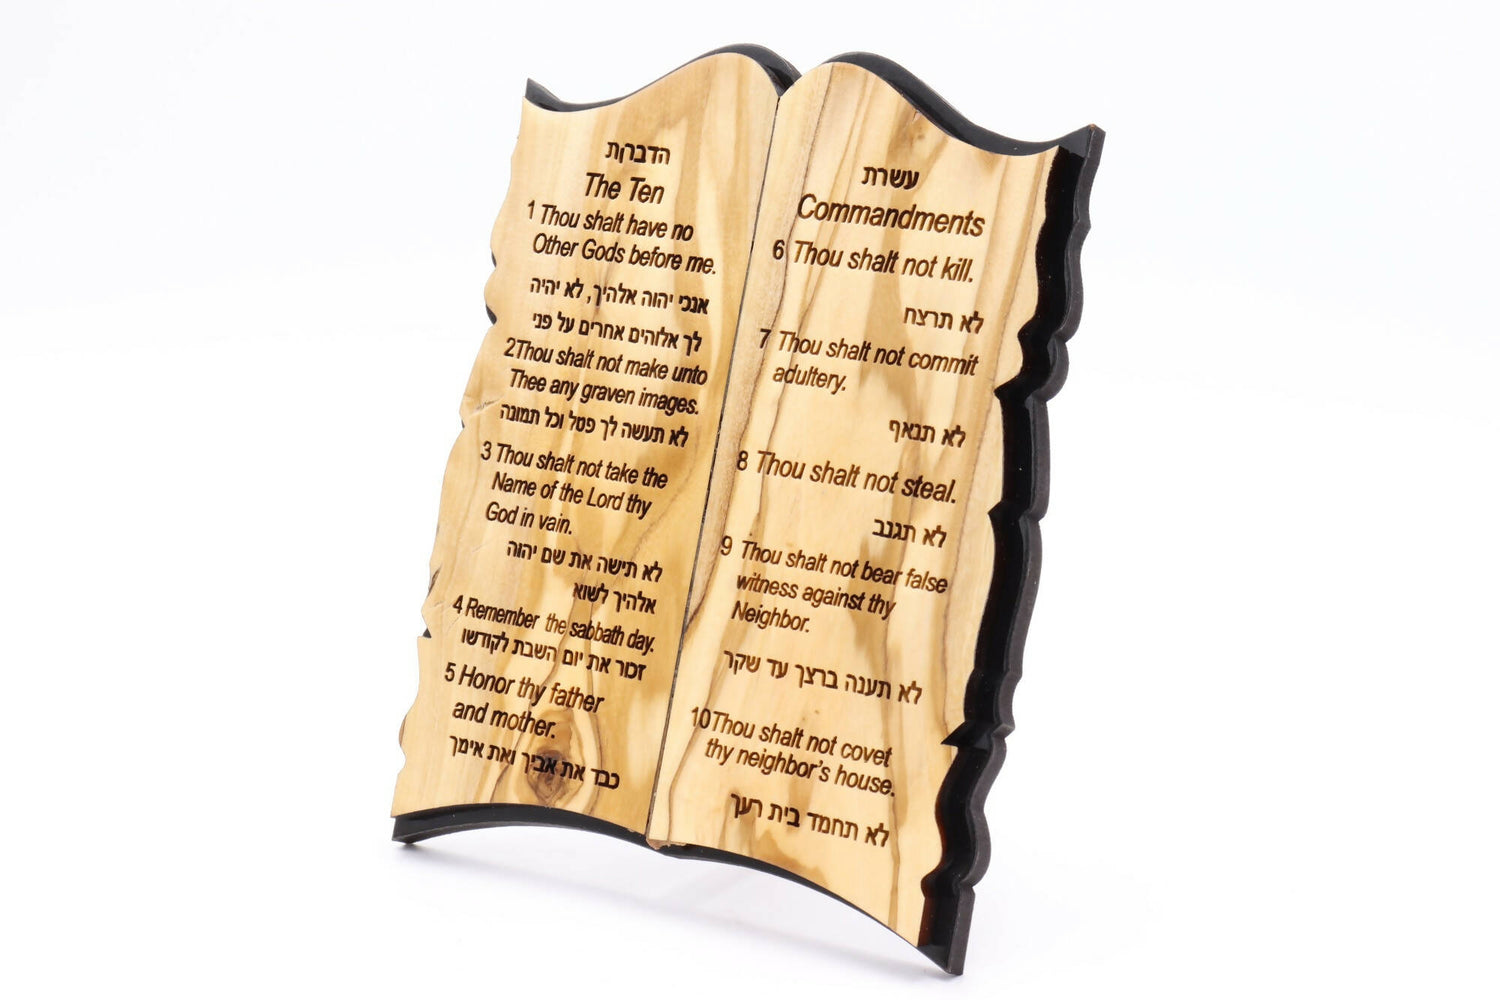 הדברות
The Ten
1 Thou shalt have no
Other Gods before me.
אנכי יהוה אלהיך, לא יהיה
לך אלוהים אחרים על פני
2Thou shalt not make unto
Thee any graven images.
לא תעשה לך פסל וכל תמונה
3 Thou shalt not take the
Name of the Lord thy
God in vain.
לא תישה את שם יהוה
אלהיך לשוא
4 Remember the sabbath day.
זכור את יום השבת לקודשו
5 Honor thy father
and mother.
כבד את אביך ואת אימך
עשרת
Commandments
6 Thou shalt not kill.
לא תרצח
7 Thou shalt not commit
adultery.
לא תנאף
8 Thou shalt not steal.
לא תגנב
9 Thou shalt not bear false
witness against thy
Neighbor.
לא תענה ברצך עד שקר
10Thou shalt not covet
thy neighbor's house.
לא תחמד בית רעך